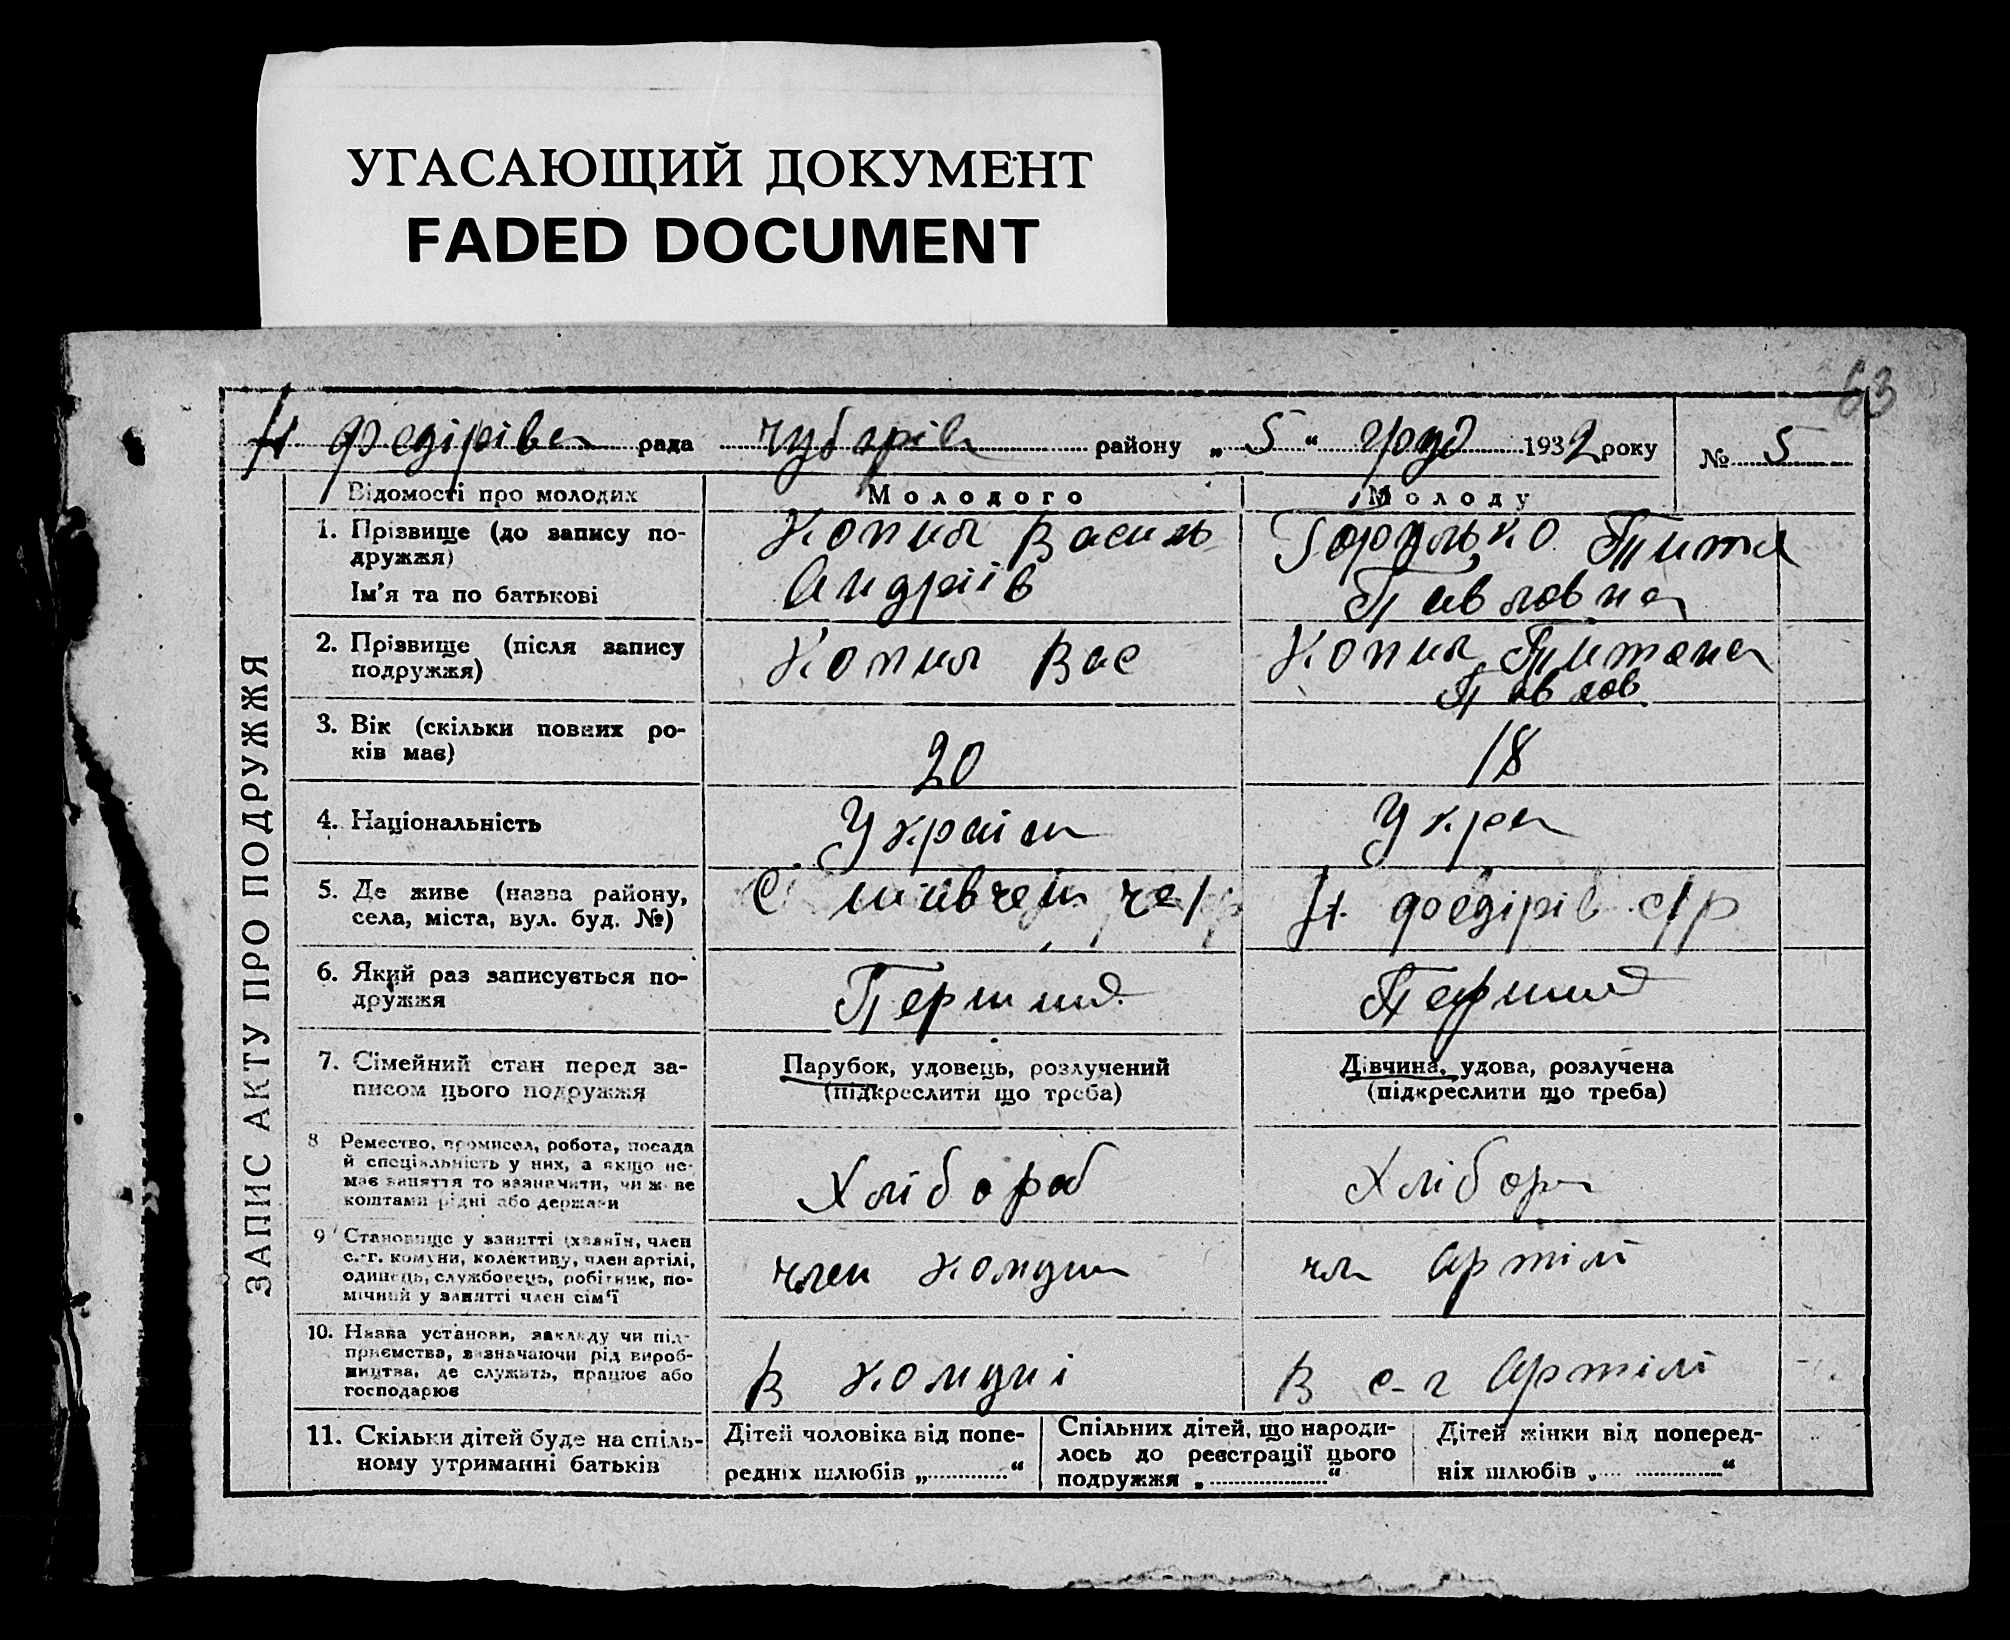 УГАСАЮЩИЙ ДОКУМЕНТ
FADED DOCUMENT
63
Н Федірівс рада Чубарів району „ 5 “ груд 1932 року № 5
ЗАПИС АКТУ ПРО ПОДРУЖЖЯ
Відомості про молодих Молодого Молоду
1. Прізвище (до запису по-
дружжя)
Ім’я та по батькові
Копия Василь
Андріїв
Горулько
Павловна
2. Прізвище (після запису
подружжя)
Копия Вас
Копия
Павлов
3. Вік (скільки повних ро-
ків має)
20
18
4. Національність
Україн
Укра
5. Де живе (назва району,
села, міста, вул. буд. №)
С
Н Федірів с/р
6. Який раз записується по-
дружжя
Перший
Перший
7. Сімейний стан перед за-
писом цього подружжя
Парубок, удовець, розлучений
(підкреслити що треба)
Дівчина, удова, розлучена
(підкреслити що треба)
8 Ремество, промисел, робота, посада
й спеціяльність у них, а якщо не-
має заняття то зазначити, чи живе
коштами рідні або держави
Хлібороб
Хлібор
9 Становище у занятті (хазяїн, член
с.-г. комуни, колективу, член артілі,
одинець, службовець, робітник, по-
мічний у занятті член сім’ї
член комуни
чл Артілі
10. Назва установи, закладу чи під-
приємства, зазначаючи рід вироб-
ництва, де служить, працює або
господарює
В комуні
В с-г Артілі
11. Скільки дітей буде на спіль-
ному утриманні батьків
Дітей чоловіка від попе-
редніх шлюбів „ “
Спільних дітей, що народи-
лось до реєстрації цього
подружжя „ “
Дітей жінки від поперед-
ніх шлюбів „ “